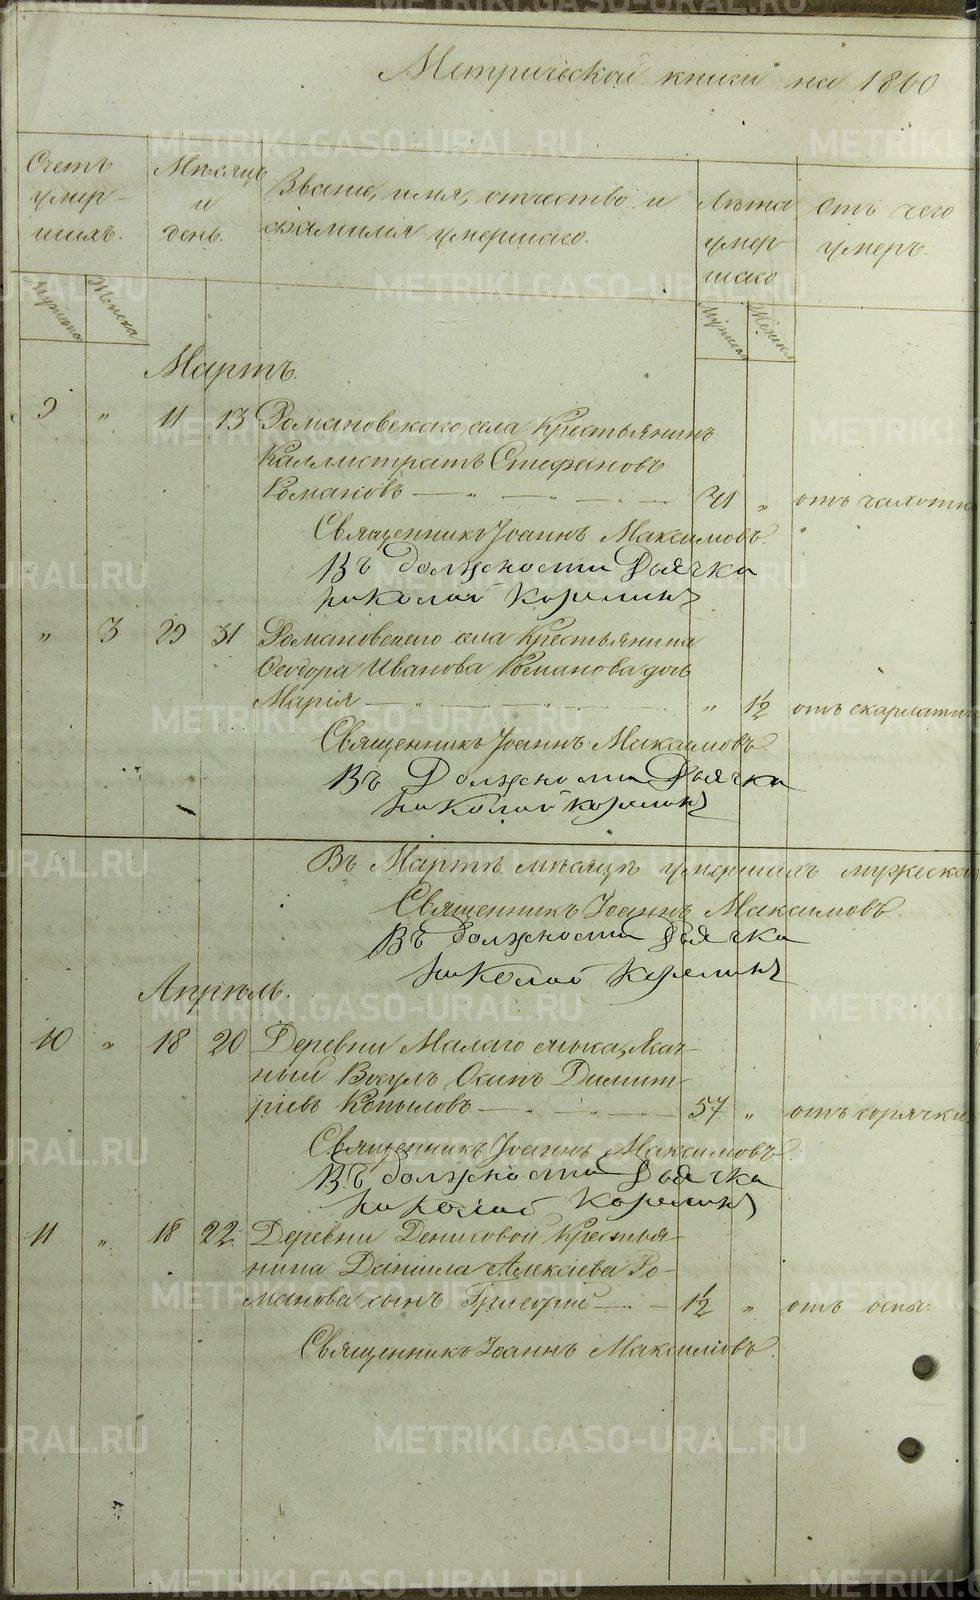 Метрической книги на 1860
Счетъ умер-шихъ.
Мѣсяцъ и день.
Званіе, имя, отчество и фамилія умершаго.
Лѣта умершаго
Отъ чего умеръ.
Мужска Женска
Мужска Женска
Мартъ.
9 " 11 13 Романовскаго села Крестьянинъ
Каллистратъ Стефановъ
Романовъ — " — " — 41 " отъ чахотки
Священникъ Іоаннъ Максимовъ.
Въ должности Дьячка
николай Корелинъ
" 3 29 31 Романовскаго села Крестьянина
Ѳеодора Иванова Романова дочь
Марія — " — " — " 1½ отъ скарлатины
Священникъ Іоаннъ Максимовъ
Въ Должности Дьячка
николай корелинъ
Въ Мартѣ мѣсяцѣ умершихъ мужеска
Священникъ Іоаннъ Максимовъ.
Въ должности Дьячка
николай Корелинъ
Апрѣль.
10 " 18 20 Деревни Малаго
ный Вогулъ Осипъ Димит-
ріевъ Копыловъ — " — 57 " отъ горячки
Священникъ Іоаннъ Максимовъ.
Въ должности Дьячка
николай Корелинъ
11 " 18 22 Деревни Денисовой Крестья-
нина Даніила Алексѣева Ро-
манова сынъ Григорій — " — 1½ " отъ оспы.
Священникъ Іоаннъ Максимовъ.
METRIKI.GASO-URAL.RU